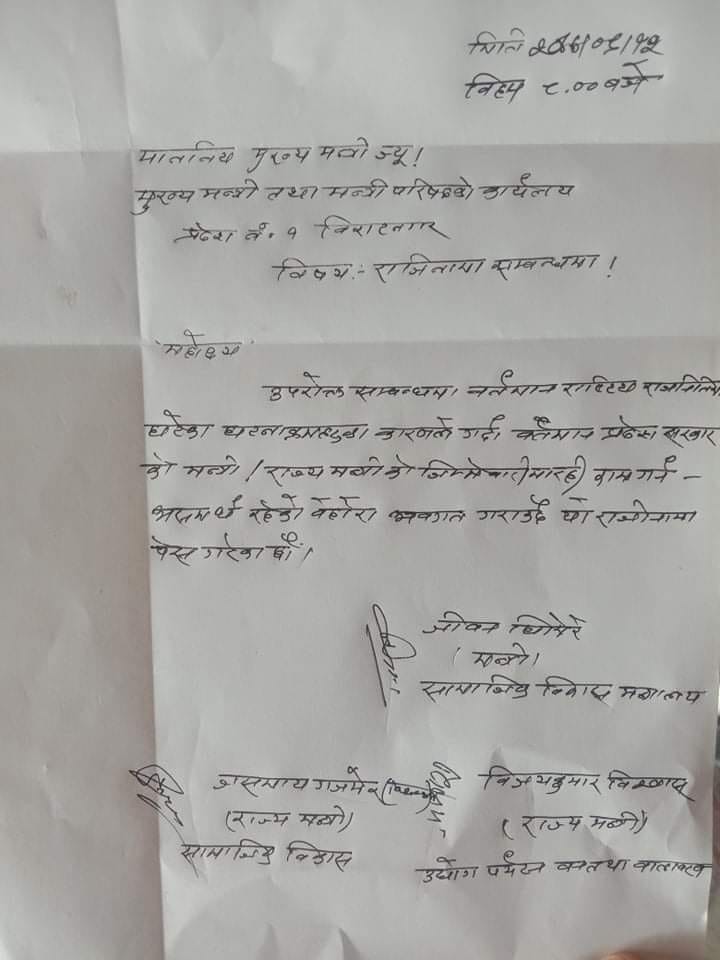 मिति २०७७/०९/१२
विहान ८.०० बजे
माननिय मुख्य मन्त्री ज्यू!
मुख्य मन्त्री तथा मन्त्री परिषदको कार्यलय
प्रदेश नं. १ विराटनगर
विषय:- राजिनामा सम्बन्धमा!
महोदय
उपरोक्त सम्बन्धमा वर्तमान राष्ट्रिय राजनितिमा
घटेका घटनाक्रमहरुका कारणले गर्दा वर्तमान प्रदेश सरकार
को मन्त्री / राज्य मन्त्री को जिम्मेवारीमा रही काम गर्न -
असमर्थ रहेको वेहोरा अवगत गराउदै यो राजीनामा
पेस गरेका छौं।
जीवन घिमिरे
(मन्त्री)
सामाजिक विकास मन्त्रालय
जसमाया गजमेर
(राज्य मन्त्री)
सामाजिक विकास
विजयकुमार विश्वास
(राज्य मन्त्री)
उद्योग पर्यटन वन तथा वातावरण